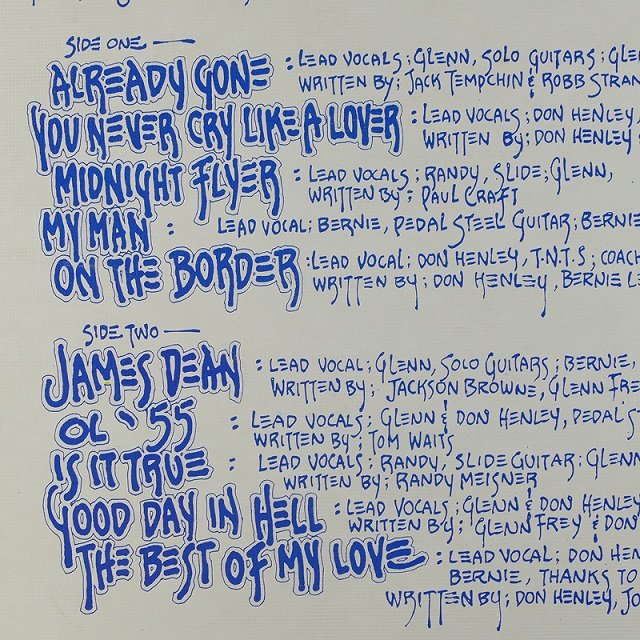 SIDE ONE —
ALREADY GONE : LEAD VOCALS; GLENN, SOLO GUITARS; GLE
WRITTEN BY; JACK TEMPCHIN & ROBB STRAN
YOU NEVER CRY LIKE A LOVER : LEAD VOCALS; DON HENLEY,
WRITTEN BY; DON HENLEY &
MIDNIGHT FLYER : LEAD VOCALS; RANDY, SLIDE; GLENN,
WRITTEN BY; PAUL CRAFT
MY MAN : LEAD VOCAL; BERNIE, PEDAL STEEL GUITAR; BERNIE
ON THE BORDER : LEAD VOCAL; DON HENLEY, T.N.T.S; COACH
WRITTEN BY; DON HENLEY, BERNIE LE
SIDE TWO —
JAMES DEAN : LEAD VOCAL; GLENN, SOLO GUITARS; BERNIE,
WRITTEN BY; JACKSON BROWNE, GLENN FRE
OL '55 : LEAD VOCALS; GLENN & DON HENLEY, PEDAL S
WRITTEN BY; TOM WAITS
IS IT TRUE : LEAD VOCALS; RANDY, SLIDE GUITAR; GLENN
WRITTEN BY; RANDY MEISNER
GOOD DAY IN HELL : LEAD VOCALS; GLENN & DON HENLEY
WRITTEN BY; GLENN FREY & DON
THE BEST OF MY LOVE : LEAD VOCAL; DON HEN
BERNIE, THANKS TO
WRITTEN BY; DON HENLEY, JO